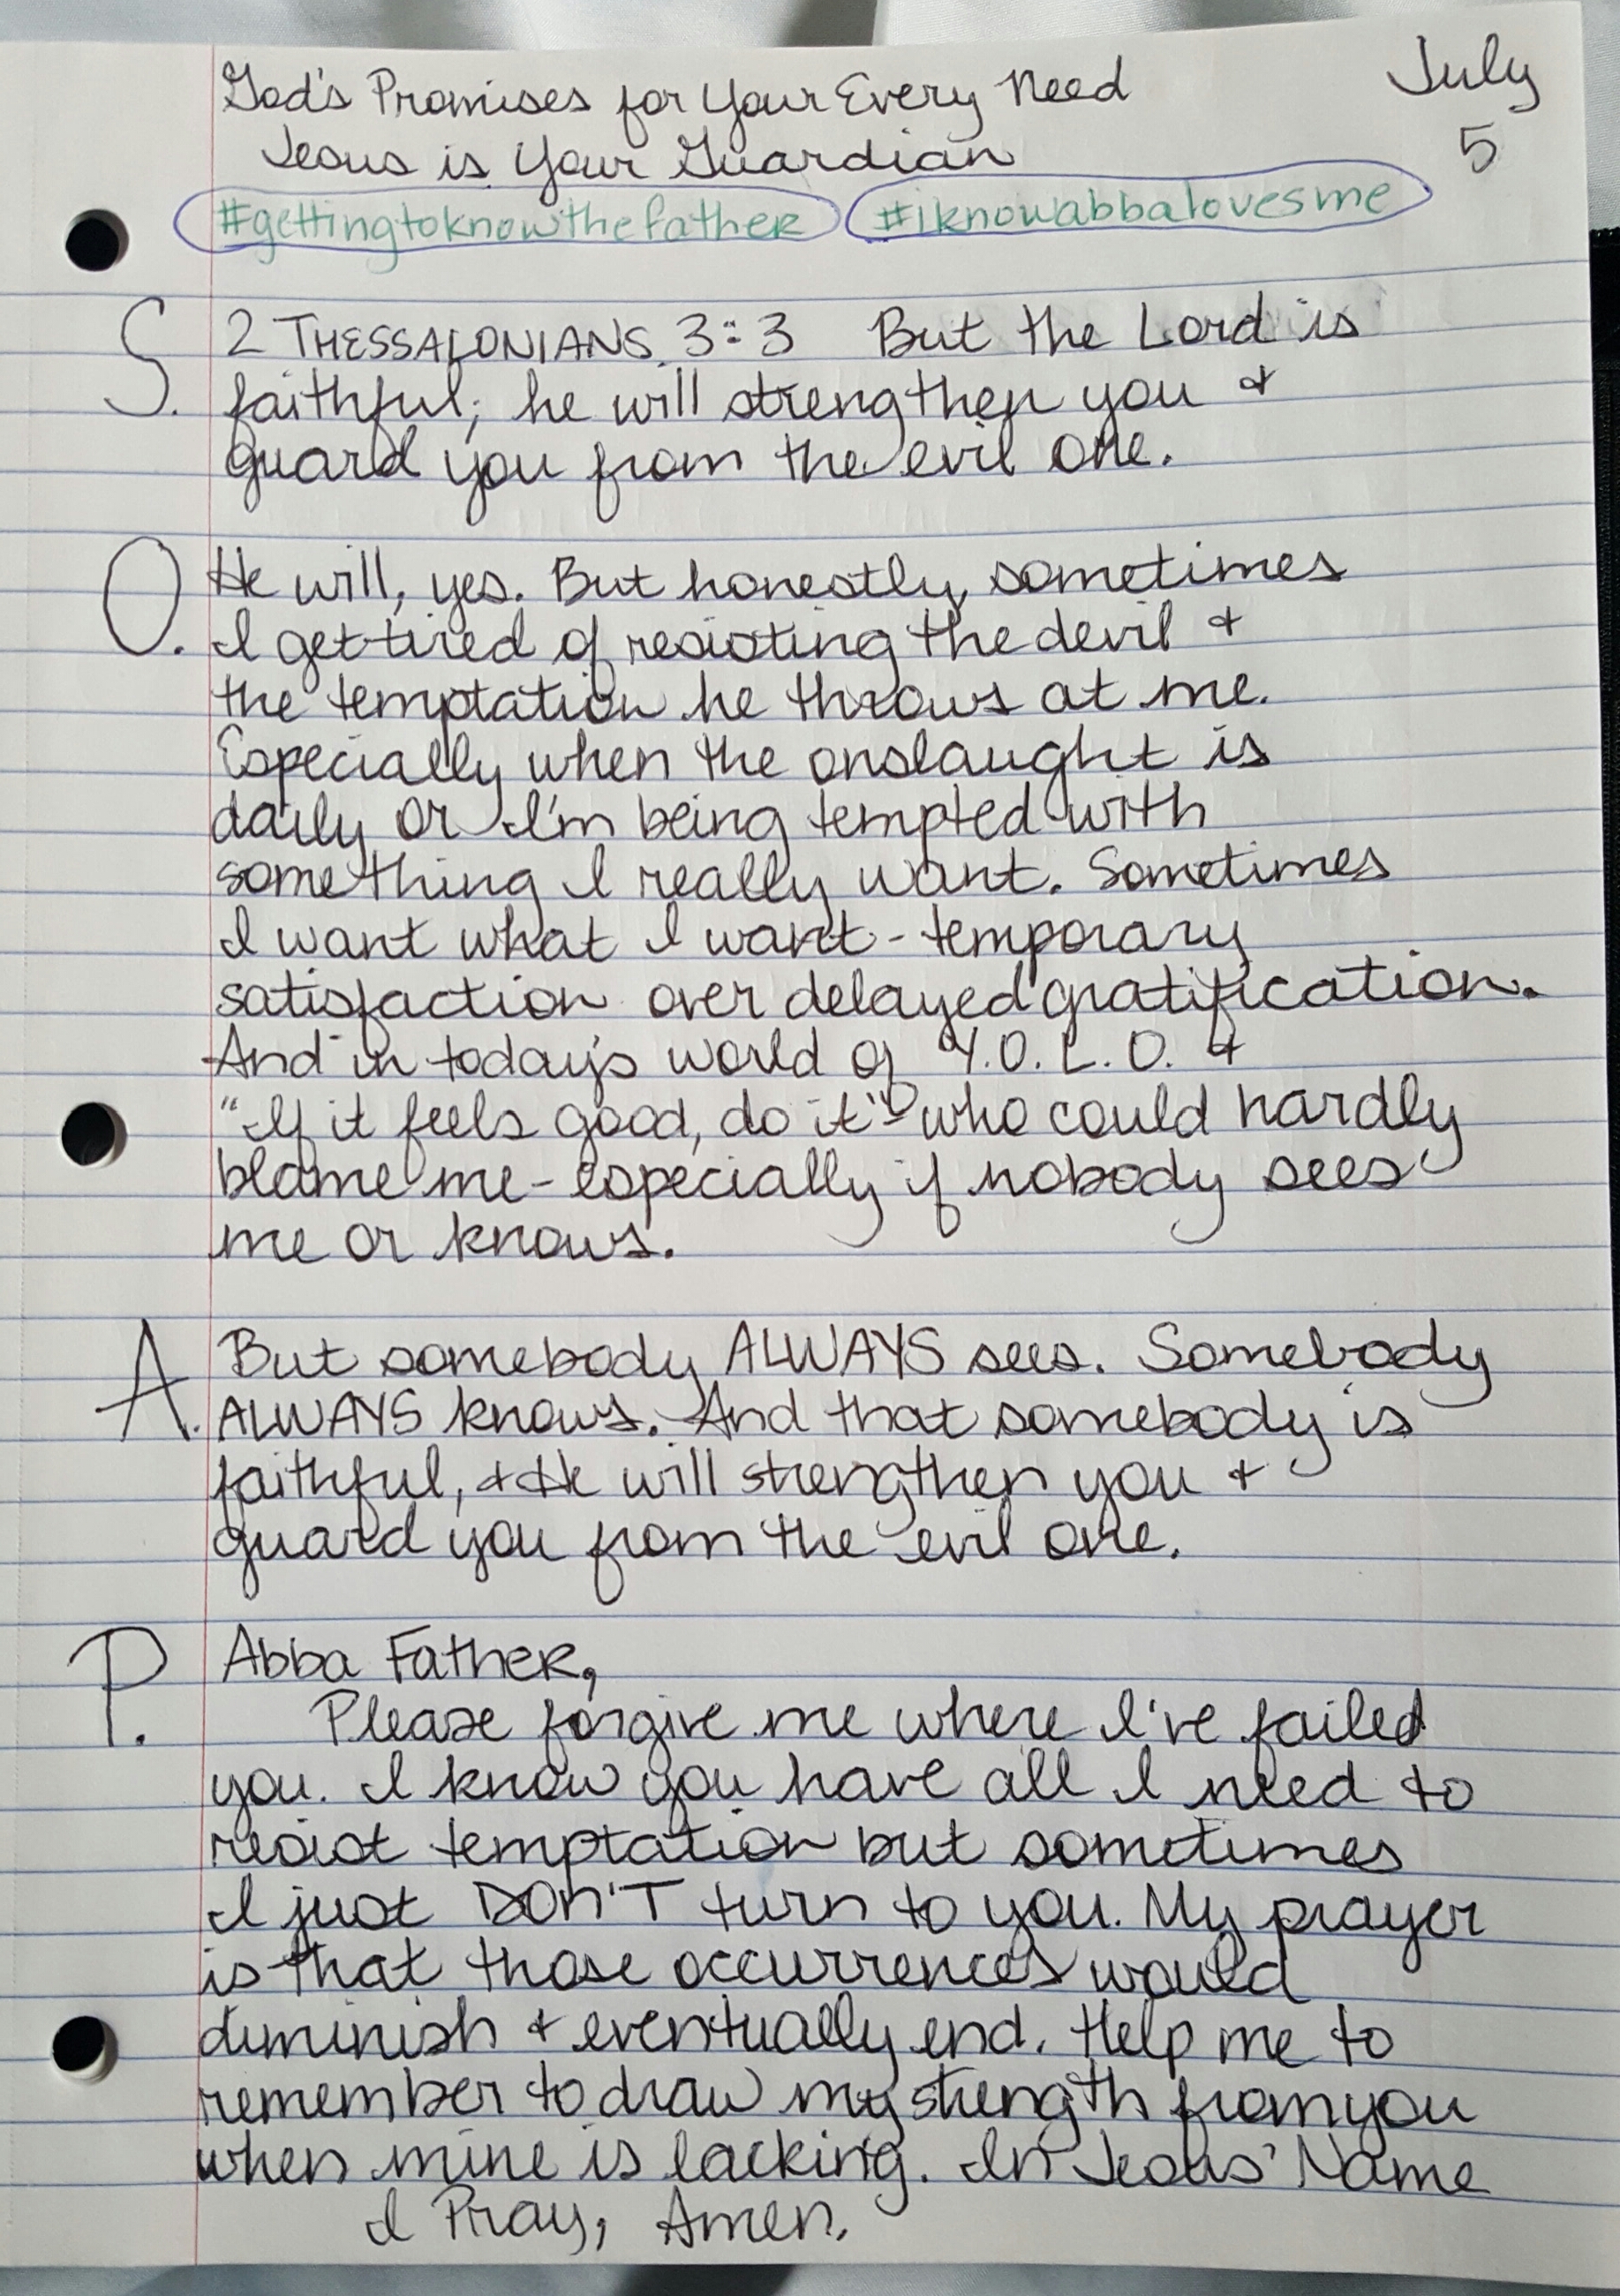 God's Promises for Your Every Need
July
Jesus is Your Guardian
5
#gettingtoknowthefather #iknowabbalovesme
S. 2 THESSALONIANS 3:3 But the Lord is
faithful; he will strengthen you &
guard you from the evil one.
O. He will, yes. But honestly, sometimes
I get tired of resisting the devil &
the temptation he throws at me.
Especially when the onslaught is
daily or I'm being tempted with
something I really want. Sometimes
I want what I want - temporary
satisfaction over delayed gratification.
And in today's world of Y.O.L.O. &
"If it feels good, do it" - who could hardly
blame me - especially if nobody sees
me or knows.
A. But somebody ALWAYS sees. Somebody
ALWAYS knows. And that somebody is
faithful, & He will strengthen you &
guard you from the evil one.
P. Abba Father,
Please forgive me where I've failed
you. I know you have all I need to
resist temptation but sometimes
I just DON'T turn to you. My prayer
is that those occurrences would
diminish & eventually end. Help me to
remember to draw my strength from you
when mine is lacking. In Jesus' Name
I Pray, Amen.